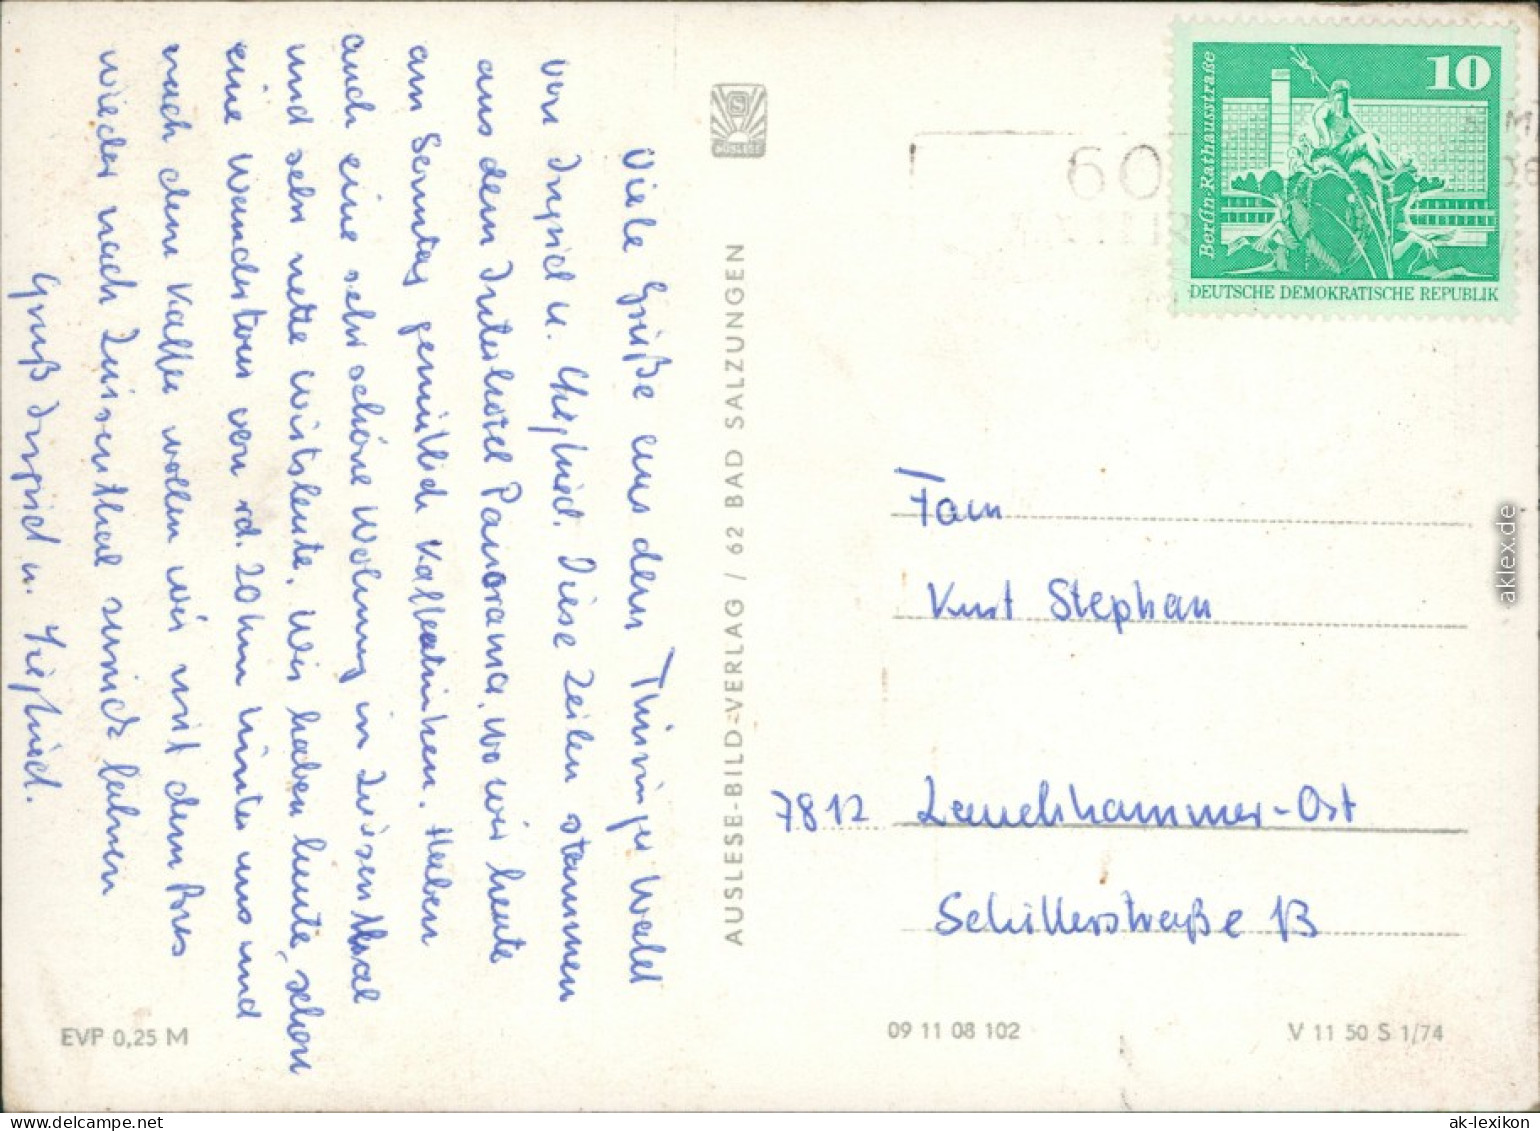 Viele Grüße aus dem Thüringer Wald
von Ingrid u. Siegfried. Diese Zeilen stammen
aus dem Interhotel Panorama, wo wir heute
am Sonntag gemütlich Kaffeetrinken. Haben
auch eine sehr schöne Wohnung in Luisenthal
und sehr nette Wirtsleute. Wir haben heute schon
eine Wandertour von rd. 20 km hinter uns und
nach dem Kaffee wollen wir mit dem Bus
wieder nach Luisenthal zurück fahren
Gruß Ingrid u. Siegfried.
EVP 0,25 M
AUSLESE
AUSLESE-BILD-VERLAG / 62 BAD SALZUNGEN
60
10
Berlin·Rathausstraße
DEUTSCHE DEMOKRATISCHE REPUBLIK
Fam
Kurt Stephan
7812 Lauchhammer-Ost
Schillerstraße 13
09 11 08 102
V 11 50 S 1/74
aklex.de
www.delcampe.net
ak-lexikon